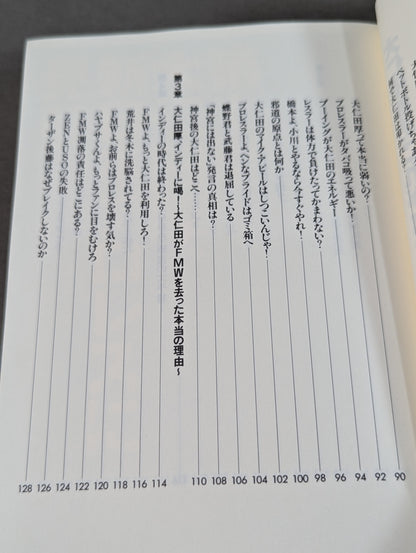 ペットボトル投げ
大仁田厚って本当に弱いの? 90
プロレスラーがタバコ吸って悪いか! 92
ブーイングが大仁田のエネルギー 94
レスラーは体力で負けたってかまわない? 96
橋本よ、小川とやるなら今すぐやれ! 98
邪道の原点とは何か 100
大仁田のマイク・アピールはしつこいんじゃ! 102
プロレスラーよ、ヘンなプライドはゴミ箱へ 104
蝶野君と武藤君は退屈している 106
「神宮には出ない」発言の真相は? 108
神宮後の大仁田はどこへ… 110
第3章 大仁田厚、インディーに喝!~大仁田がFMWを去った本当の理由~
インディーの時代は終わった? 114
FMWよ、もっと大仁田を利用しろ! 116
荒井は冬木に洗脳されてる? 118
FMWよ、お前らはプロレスを壊す気か? 120
ハヤブサくんよ、もっとファンに目をむけろ 122
FMW凋落の責任はどこにある? 124
ZENとUSOの失敗 126
ターザン後藤はなぜブレイクしないのか 128